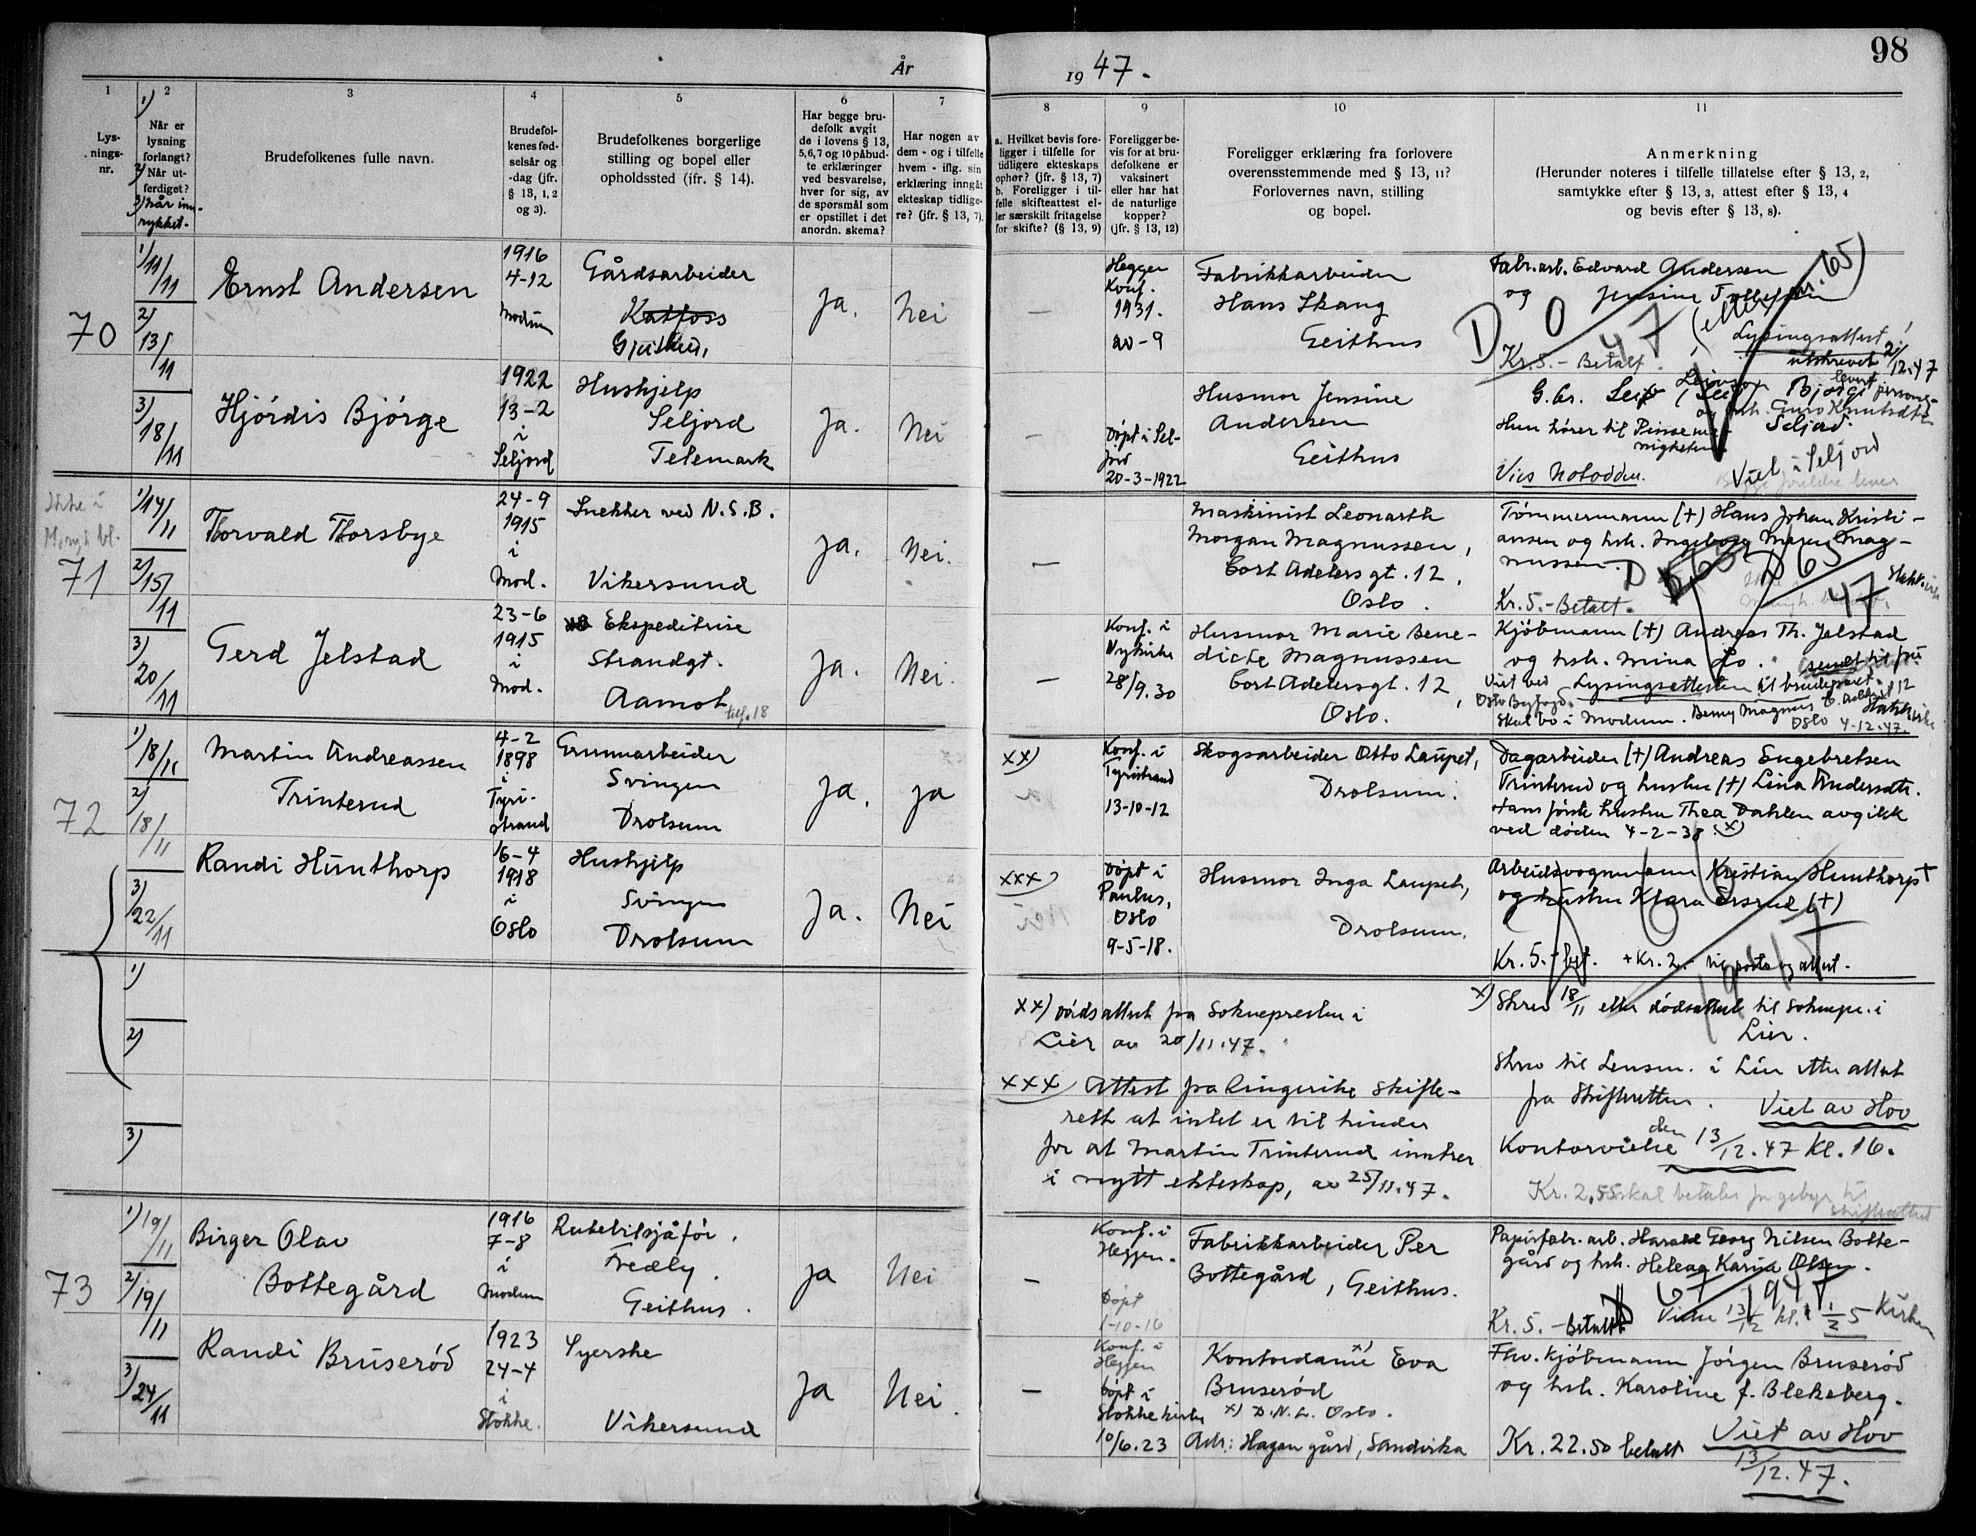 År
19 47.
98
1
Lys-
nings-
nr.
2
1)
Når er
lysning
forlangt?
2)
Når ut-
ferdiget?
3) Når inn-
rykket.
3
Brudefolkenes fulle navn.
4
Brudefol-
kenes fød-
selsår og
-dag (jfr.
§ 13, 1, 2
og 3).
5
Brudefolkenes borgerlige
stilling og bopel eller
opholdssted (ifr. § 14).
6
Har begge bru-
defolk avgit
de i lovens § 13,
5, 6, 7 og 10 påbud-
te erklæringer
ved besvarelse,
hver for sig, av
de spørsmål som
er opstillet i det
anordn. skema?
7
Har nogen av
dem - og i tilfelle
hvem - iflg. sin
erklæring inngåt
ekteskap tidlige-
re? (jfr. § 13, 7).
8
a. Hvilket bevis fore-
ligger i tilfelle for
tidligere ekteskaps
ophør? (jfr. § 13, 7)
b. Foreligger i til-
felle skifteattest el-
ler særskilt fritagelse
for skifte? (§ 13, 9)
9
Foreligger be-
vis for at bru-
defolkene er
vaksinert
eller har hat
de naturlige
kopper?
(jfr. § 13, 12)
10
Foreligger erklæring fra forlovere
overensstemmende med § 13, 11?
Forlovernes navn, stilling
og bopel.
11
Anmerkning
(Herunder noteres i tilfelle tillatelse efter § 13, 2,
samtykke efter § 13, 3, attest efter § 13, 4
og bevis efter § 13, 8).
70
1) 11/11
2) 13/11
3) 18/11
Ernst Andersen
1916
4-12
Modum
Gårdsarbeider
Katfoss
Ja.
Nei
—
Heggen
Konf.
1931.
av - 9
Fabrikkarbeider
Hans Skang
Geithus
Fabr.arb. Edvard Andersen
og Jensine
D 0 47
(etter nr. 65)
Kr. 5. - Betalt.
Lysingsattest
utskrevet 2/12.47
Hjördis Bjørge
1922
13-2
i
Seljord
Hushjelp
Seljord
Telemark
Ja.
Nei
—
Døpt i Sel-
jord
20-3-1922
Husmor Jensine
Andersen
Geithus
G.br. Leif
og hsh. Guro Knutsdtr.
Seljord.
Hun hører til Pinseme-
nigheten.
Vies Notodden.
Viet i Seljord
Ikke i
71
1) 14/11
2) 15/11
3) 20/11
Thorvald Thorsbye
24-9
1915
i
Mod.
Snekker ved N.S.B.
Vikersund
Ja.
Nei.
—
Maskinist Leonarth
Morgan Magnussen,
Cort Adelersgt. 12,
Oslo.
Tömmermann (+) Hans Johan Kristi-
ansen og hsh. Ingeborg Marie Mag-
nussen.
D 63
47
Kr. 5. - Betalt.
Gerd Jelstad
23-6
1915
i
Mod.
Ekspeditrise
Strandgt.
Aamot
tlf. 18
Ja.
Nei.
—
Konf. i
Nykirke
28/9.30
Husmor Marie Bene-
dicte Magnussen
Cort Adelersgt. 12,
Oslo.
Kjöbmann (+) Andreas Th. Jelstad
og hsh. Mina Lo.
Viet ved Lysingsattesten til brudeparet.
Oslo Byfogd.
Skal bo i Modum. Benny Magnus
Oslo 4-12.47.
72
1) 18/11
2) 18/11
3) 22/11
Martin Andreassen
Trinterud
4-2
1898
i
Tyri-
strand
Grunnarbeider
Svingen
Drolsum
Ja.
Ja
xx)
Konf. i
Tyristrand
13-10-12
Skogsarbeider Otto Laupet,
Drolsum.
Dagarbeider (+) Andreas Engebretsen
Trinterud og hustru (+) Lina Andersdtr.
Hans første hustru Thea Dahlen avgikk
ved døden 4-2-38 x)
Randi Hunthorp
16-4
1918
i
Oslo
Hushjelp
Svingen
Drolsum
Ja.
Nei
xxx)
Døpt i
Paulus,
Oslo
9-5-18.
Husmor Inga Laupet,
Drolsum.
Arbeidsvognmann Kristian Hunthorp +
og hustru Klara Ersrud (+)
Kr. 5. - bet. + Kr. 2. - til porto og attest.
1)
2)
3)
xx) Dödsattest fra Soknepresten i
Lier av 20/11.47.
xxx) Attest fra Ringerike Skifte-
rett at intet er til hinder
for at Martin Trinterud inntrer
i nytt ekteskap, av 25/11.47.
x) Skrev 18/11 etter dödsattest til Soknepr. i
Lier.
Skrev til Lensm. i Lier etter attest
fra Skifteretten.
Viet av Hov
Kontorvielse den 13/12.47 kl. 16.
Kr. 2,55 skal betales for gebyr til
skifteattest
73
1) 19/11
2) 19/11
3) 24/11
Birger Olav
Bottegård
1916
7-8
i
Modum
Rutebilsjåfør.
Fredly.
Geithus.
Ja
Nei
—
Konf. i
Heggen.
Døpt
1-10-16
Fabrikkarbeider Per
Bottegård, Geithus.
Papirfabr.arb. Harald Georg Nilsen Botte-
gård og hsh. Helene Karine Olsen.
D 67 1947
Kr. 5. - Betalt
Vies 13/12 kl. 1/2 5 Kirken
Randi Bruserød
1923
24-4
i
Stokke.
Syerske
Vikersund
Ja
Nei.
—
Konf. i
Heggen
Døpt i
Stokke kirke
10/6.23
Kontordame x) Eva
Bruserød
x) D.N.L. Oslo.
Adr: Hagan gård, Sandvika
Fhv. kjöbmann Jörgen Bruserød
og hsh. Karoline f. Blekeberg.
Kr. 22.50 betalt
Viet av Hov
13/12.47.